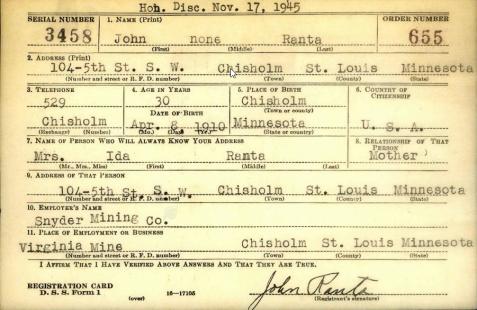 Hon. Disc. Nov. 17, 1945
SERIAL NUMBER 1. NAME (Print) ORDER NUMBER
3458 John none Ranta 655
(First) (Middle) (Last)
2. ADDRESS (Print)
104-5th St. S. W. Chisholm St. Louis Minnesota
(Number and street or R. F. D. number) (Town) (County) (State)
3. TELEPHONE 4. AGE IN YEARS 5. PLACE OF BIRTH 6. COUNTRY OF CITIZENSHIP
529 30 Chisholm
DATE OF BIRTH (Town or county)
Chisholm Apr. 8 1910 Minnesota U. S. A.
(Exchange) (Number) (Mo.) (Day) (Yr.) (State or country)
7. NAME OF PERSON WHO WILL ALWAYS KNOW YOUR ADDRESS 8. RELATIONSHIP OF THAT PERSON
Mrs. Ida Ranta Mother
(Mr., Mrs., Miss) (First) (Middle) (Last)
9. ADDRESS OF THAT PERSON
104-5th St. S. W. Chisholm St. Louis Minnesota
(Number and street or R. F. D. number) (Town) (County) (State)
10. EMPLOYER'S NAME
Snyder Mining Co.
11. PLACE OF EMPLOYMENT OR BUSINESS
Virginia Mine Chisholm St. Louis Minnesota
(Number and street or R. F. D. number) (Town) (County) (State)
I AFFIRM THAT I HAVE VERIFIED ABOVE ANSWERS AND THAT THEY ARE TRUE.
REGISTRATION CARD
D. S. S. Form 1 (over) 16-17105 John Ranta
(Registrant's signature)